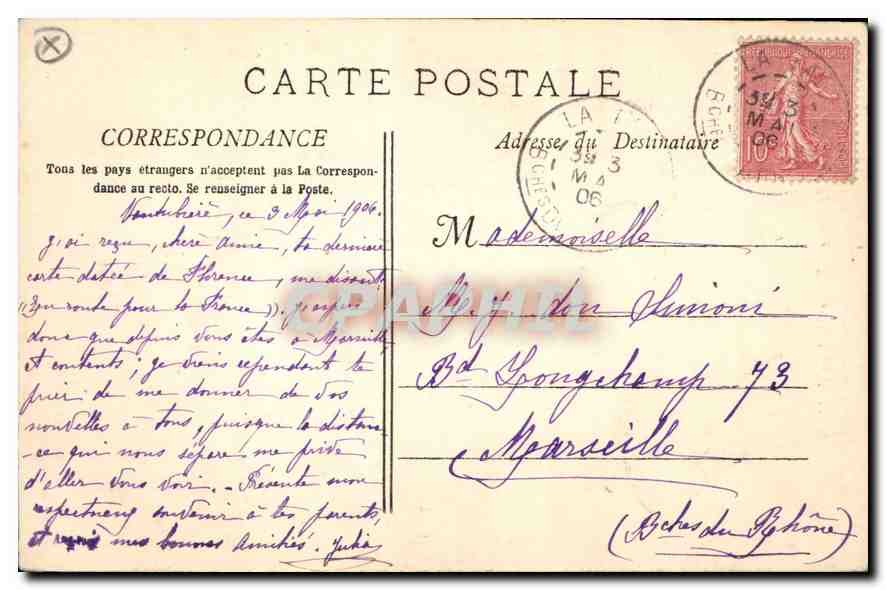 CARTE POSTALE
CORRESPONDANCE
Tous les pays étrangers n'acceptent pas La Correspon-
dance au recto. Se renseigner à la Poste.
Ventabrère, ce 3 Mai 1906.
J'ai reçu, chère amie, ta dernière
carte datée de Florence, me disant
"En route pour la France". J'espère
donc que depuis vous êtes à Marseille
et contents; je viens cependant te
prier de me donner de vos
nouvelles à tous, puisque la distan-
-ce qui nous sépare me prive
d'aller vous voir. - Présente mon
respectueux souvenir à tes parents,
et mes bonnes amitiés. Julia
Adresse du Destinataire
Mademoiselle
M. J. don Simoni
Bd Longchamp 73
Marseille
(Bches du Rhône)
REPUBLIQUE FRANÇAISE
10
LA
3
MAI
06
BCHES DU
LA
3
MA
06
CPAPHIL